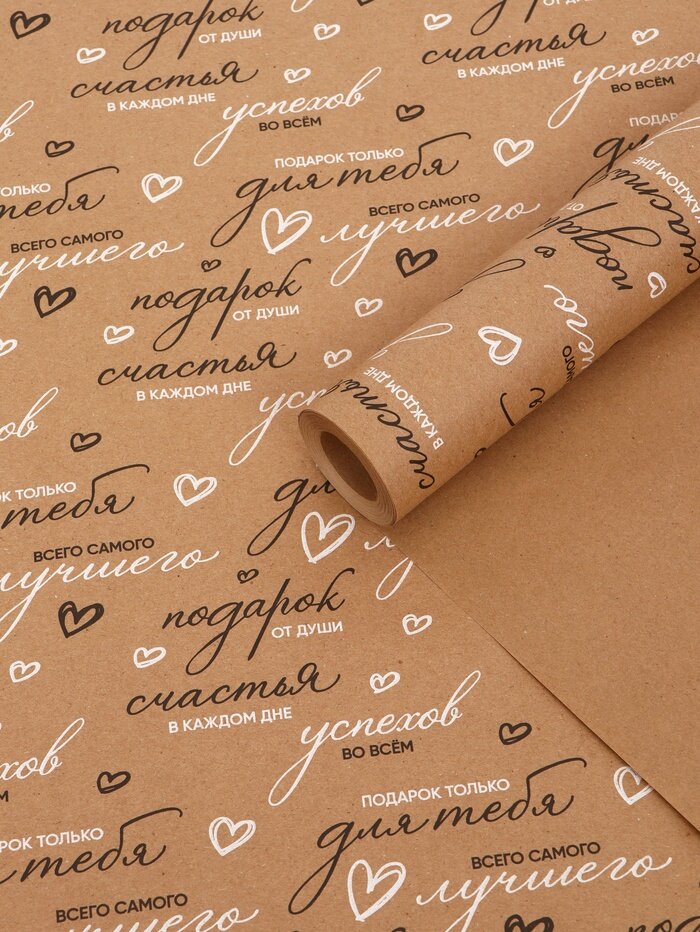 подарок
ОТ ДУШИ
счастья
В КАЖДОМ ДНЕ
В КАЖДОМ ДНЕ
успехов
ВО ВСЁМ
ПОДАРОК
ПОДАРОК ТОЛЬКО
для тебя
ТОЛЬКО
тебя
ВСЕГО САМОГО
лучшего
ВСЕГО САМОГО
лучшего
подарок
ОТ ДУШИ
счастья
В КАЖДОМ ДНЕ
В КАЖДОМ ДНЕ
счастья
ТОЛЬКО
тебя
ВСЕГО САМОГО
лучшего
подарок
ОТ ДУШИ
счастья
В КАЖДОМ ДНЕ
успехов
ВО ВСЁМ
ПОДАРОК ТОЛЬКО
для тебя
ПОДАРОК ТОЛЬКО
тебя
ВСЕГО САМОГО
лучшего
ВСЕГО САМОГО